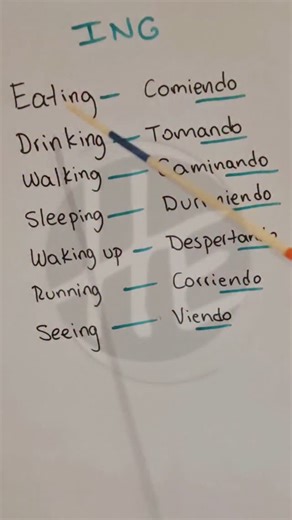 ING
Eating — Comiendo
Drinking — Tomando
Walking — Caminando
Sleeping — Durmiendo
Waking up — Despertando
Running — Corriendo
Seeing — Viendo